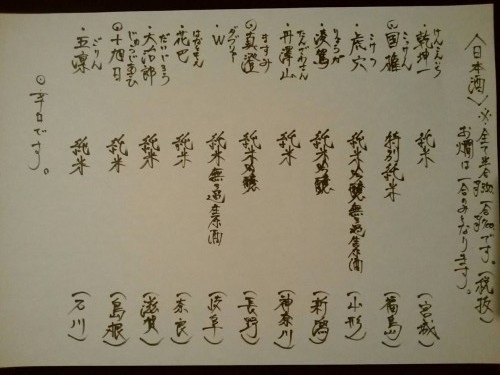 〈日本酒〉※全て半合 一合です。(税抜)
お燗は一合のみとなります。
けんこんいち
・乾坤一 純米 (宮城)
こっけん
◎国権 特別純米 (福島)
こけつ
・虎穴 純米大吟醸無ろ過生原酒 (山形)
りょうが
・凌駕 純米吟醸 (新潟)
たんざわさん
・丹澤山 純米 (神奈川)
ますみ
◎真澄 純米吟醸 (長野)
ダブリュー
・W 純米無ろ過生原酒 (岐阜)
はなともえ
・花巴 純米 (奈良)
だいじろう
・大治郎 純米 (滋賀)
じゅうじあさひ
◎十旭日 純米 (島根)
ごりん
・五凛 純米 (石川)
◎辛口です。